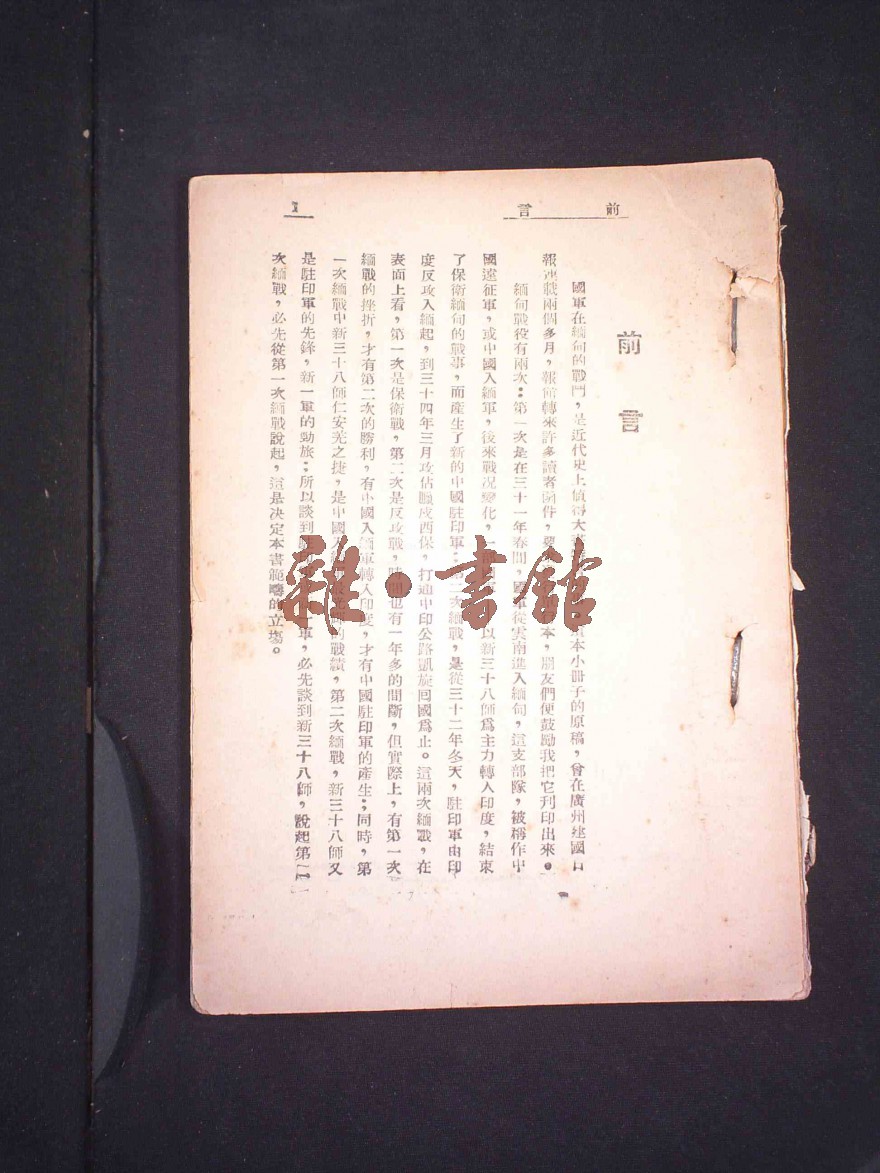 前言
1
前言
國軍在緬甸的戰鬥，是近代史上值得大本小冊子的原稿，曾在廣州建國日
報連載兩個多月，報館轉來許多讀者函件，本，朋友們便鼓勵我把它刊印出來。
緬甸戰役有兩次：第一次是在三十一年春間，國軍從雲南進入緬甸，這支部隊，被稱作中
國遠征軍，或中國入緬軍，後來戰況變化，一以新三十八師爲主力轉入印度，結束
了保衛緬甸的戰事，而產生了新的中國駐印軍；第二次緬戰，是從三十二年冬天，駐印軍由印
度反攻入緬起，到三十四年三月攻佔臘戌西保，打通中印公路凱旋回國爲止。這兩次緬戰，在
表面上看，第一次是保衛戰，第二次是反攻戰，時間也有一年多的間斷，但實際上，有第一次
緬戰的挫折，才有第二次的勝利，有中國入緬軍轉入印度，才有中國駐印軍的產生；同時，第
一次緬戰中新三十八師仁安羌之捷，是中國入的戰績，第二次緬戰，新三十八師又
是駐印軍的先鋒，新一軍的勁旅；所以談到軍，必先談到新三十八師，說起第二
次緬戰，必先從第一次緬戰說起，這是決定本書範疇的立場。
雜·書館